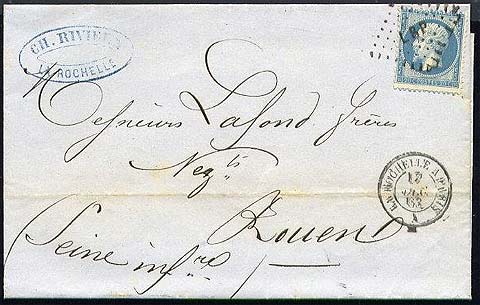 CH. RIVIERE
LA ROCHELLE
Messieurs Lafond frères
Negts
Rouen
(Seine infre)
LA ROCHELLE A PARIS
17
63
A